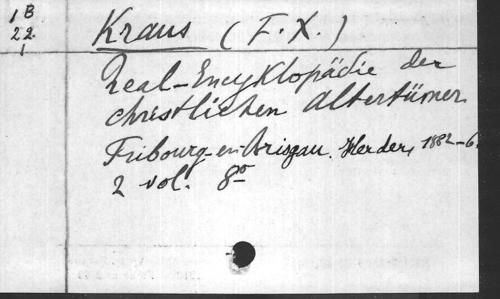 1B
22
1
Kraus (F.X.)
Real-Encyklopädie der
christlichen Altertümer.
Fribourg-en-Brisgau. Herder, 1882-6.
2 vol. 8º